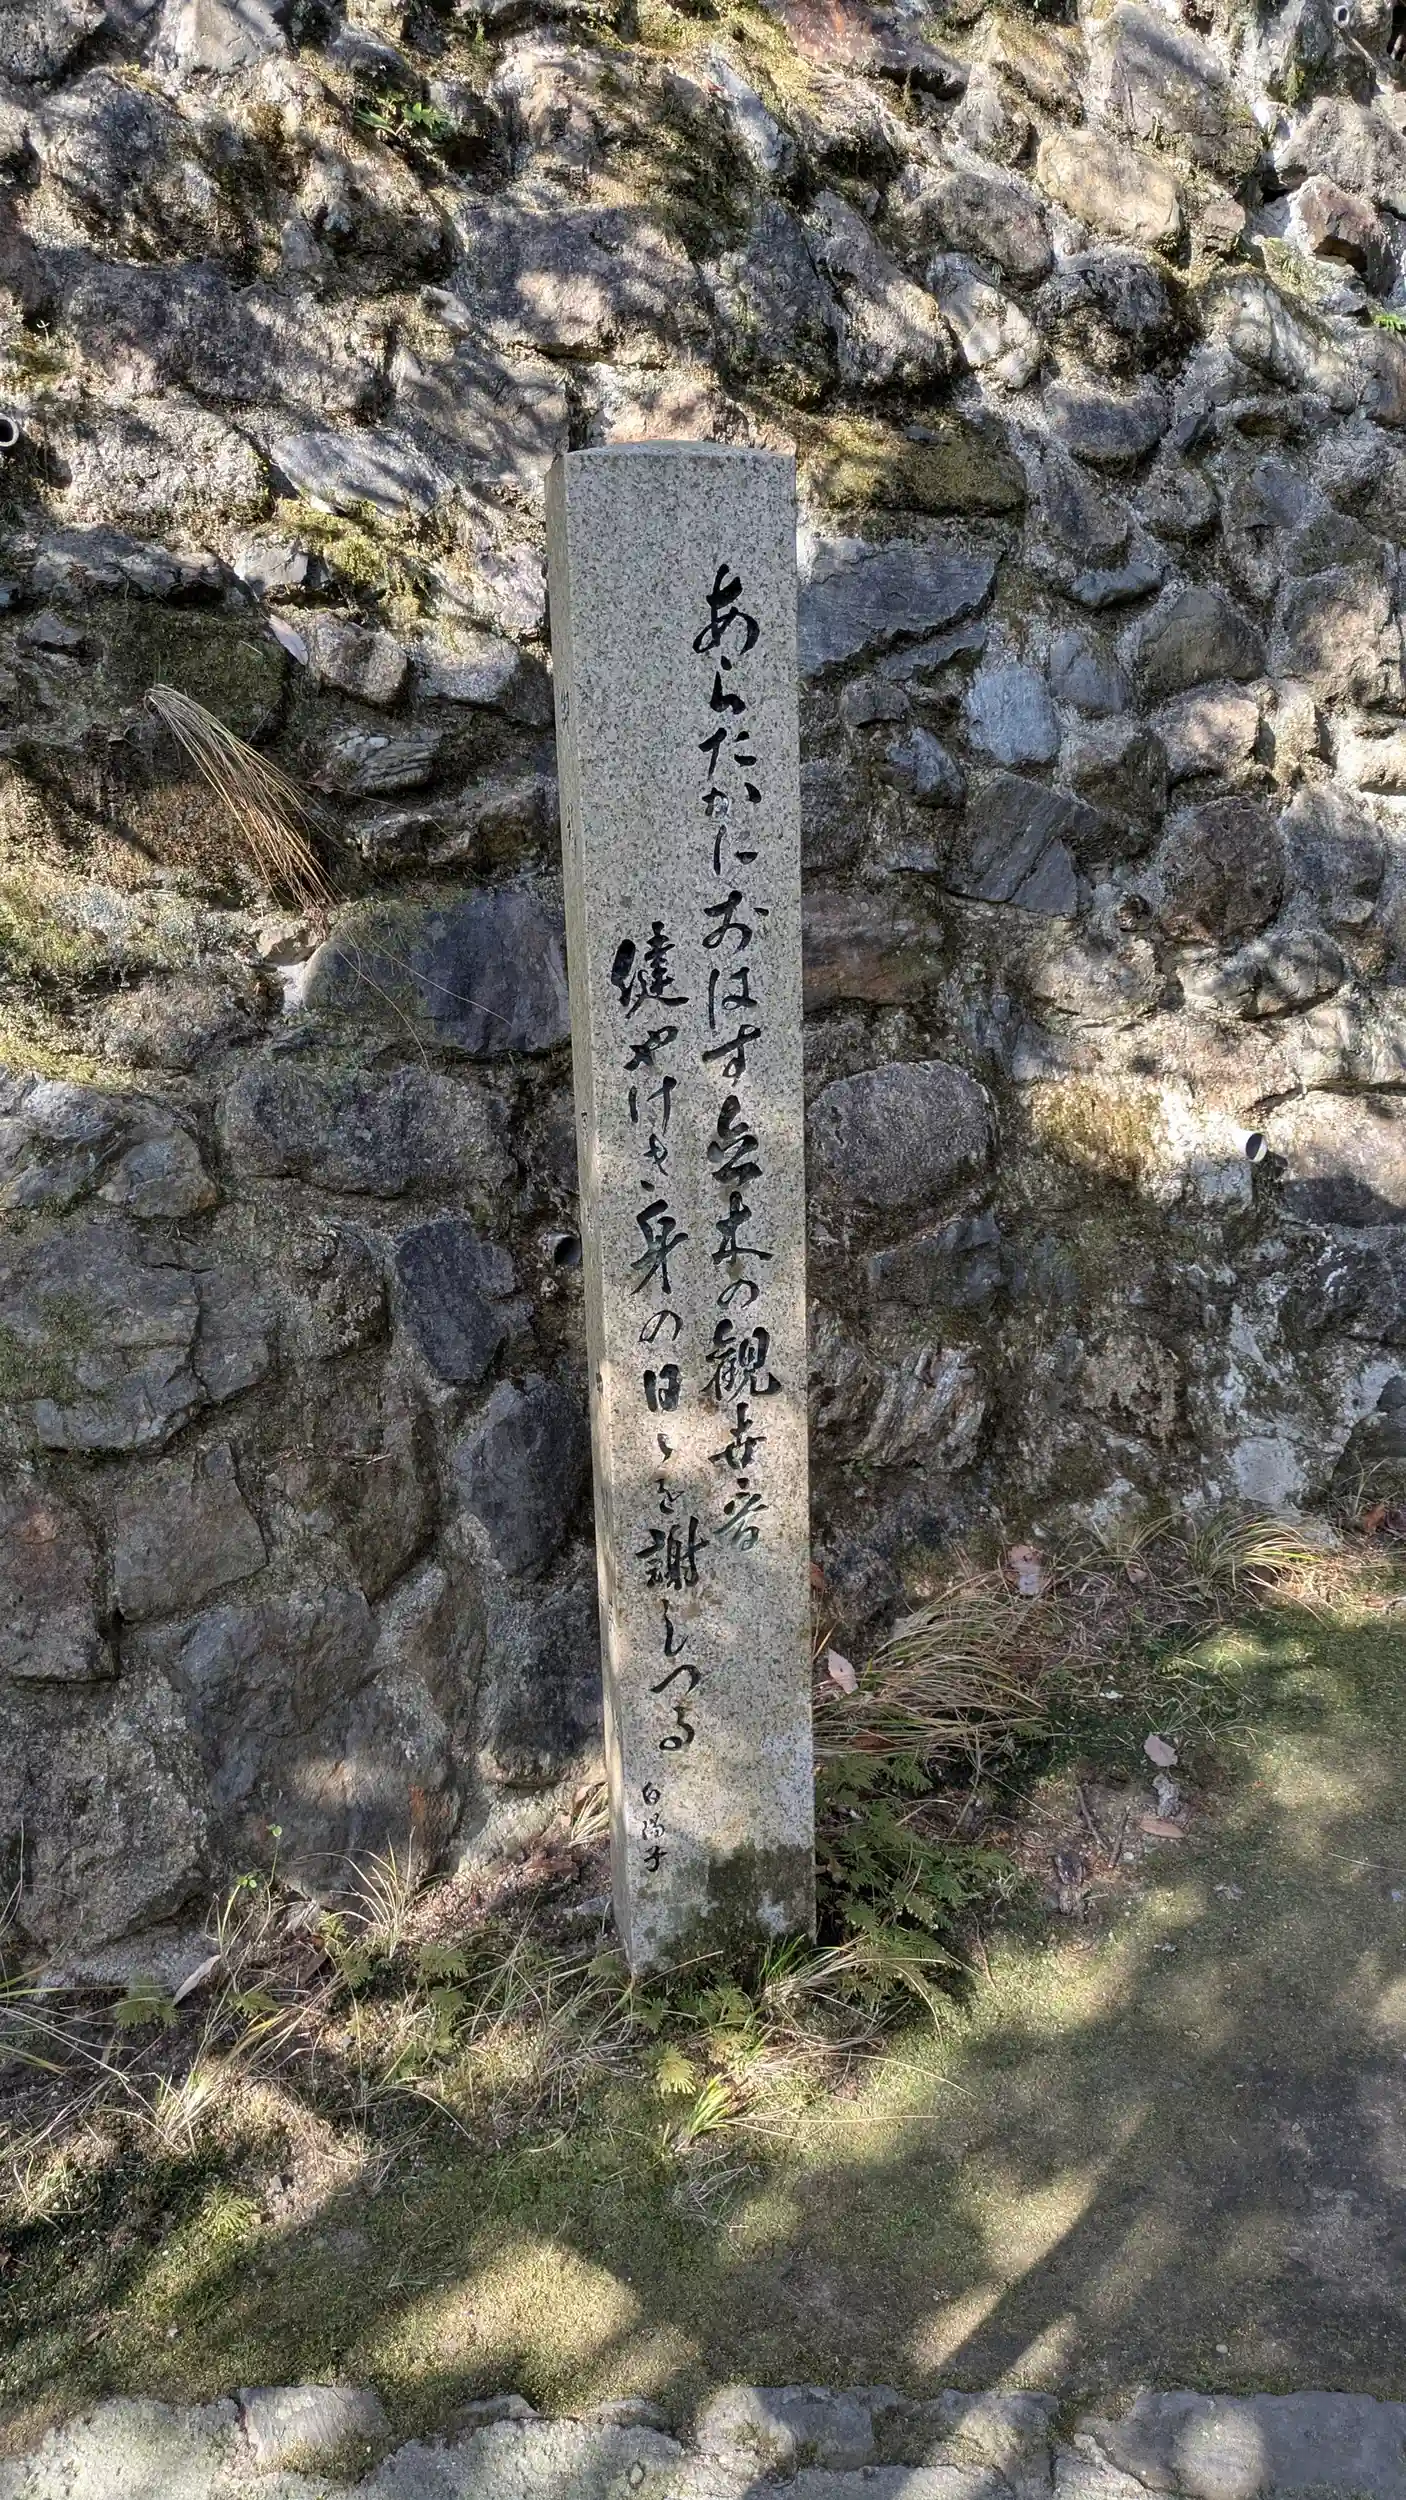 あらたかにおはす立木の観世音
健やけき身の日々を謝しつる
白陽子